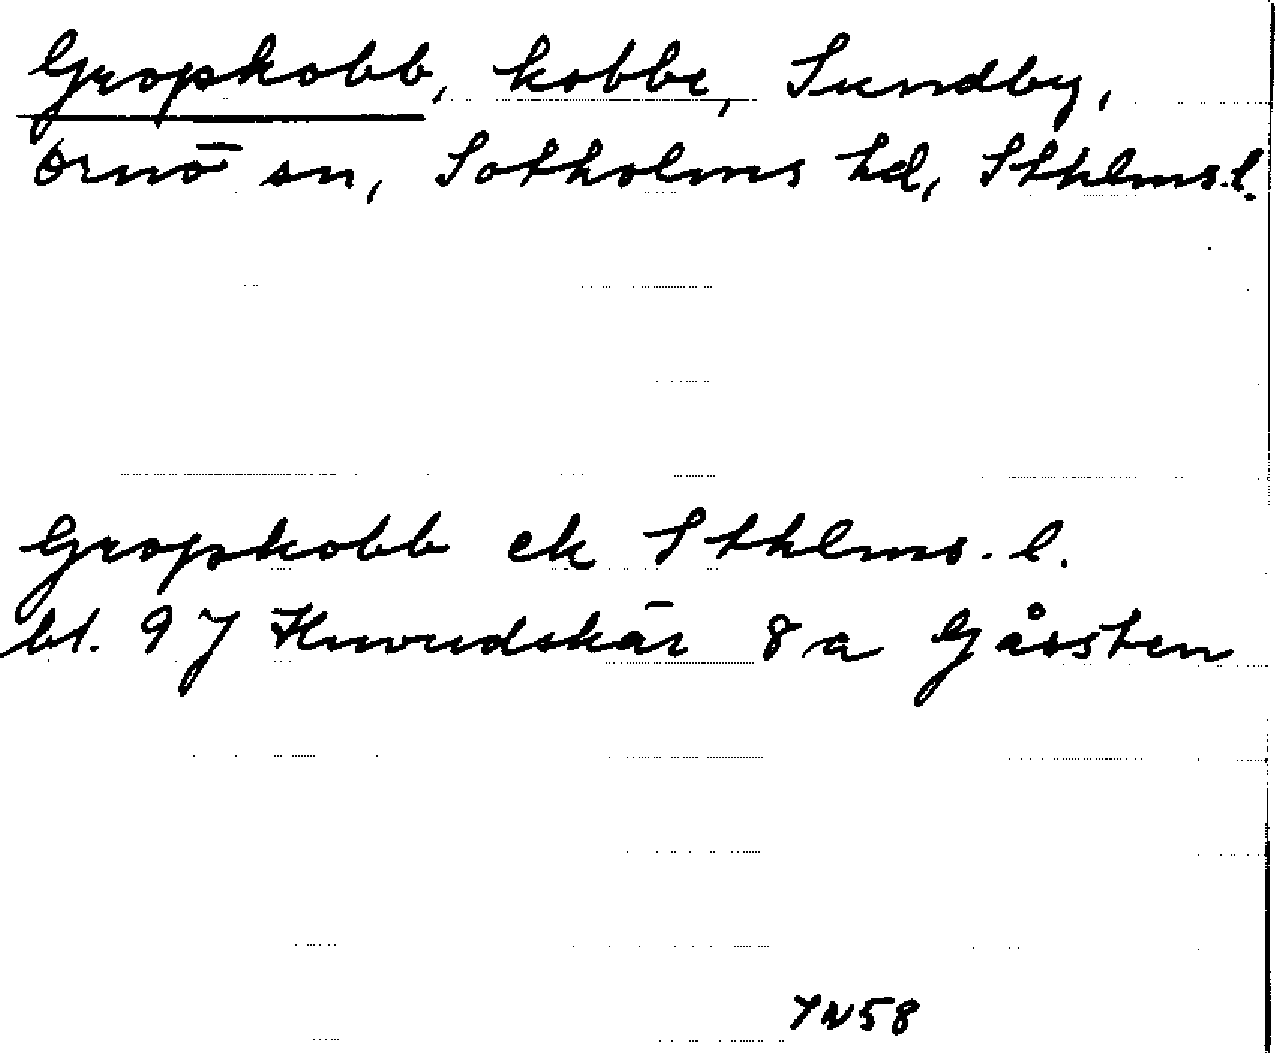 Gropkobb, kobbe, Sundby,
Ornö sn, Sotholms hd, Sthlms.l.
Gropkobb ek Sthlms.l.
bl. 97 Huvudskär 8a Gåssten
YN58